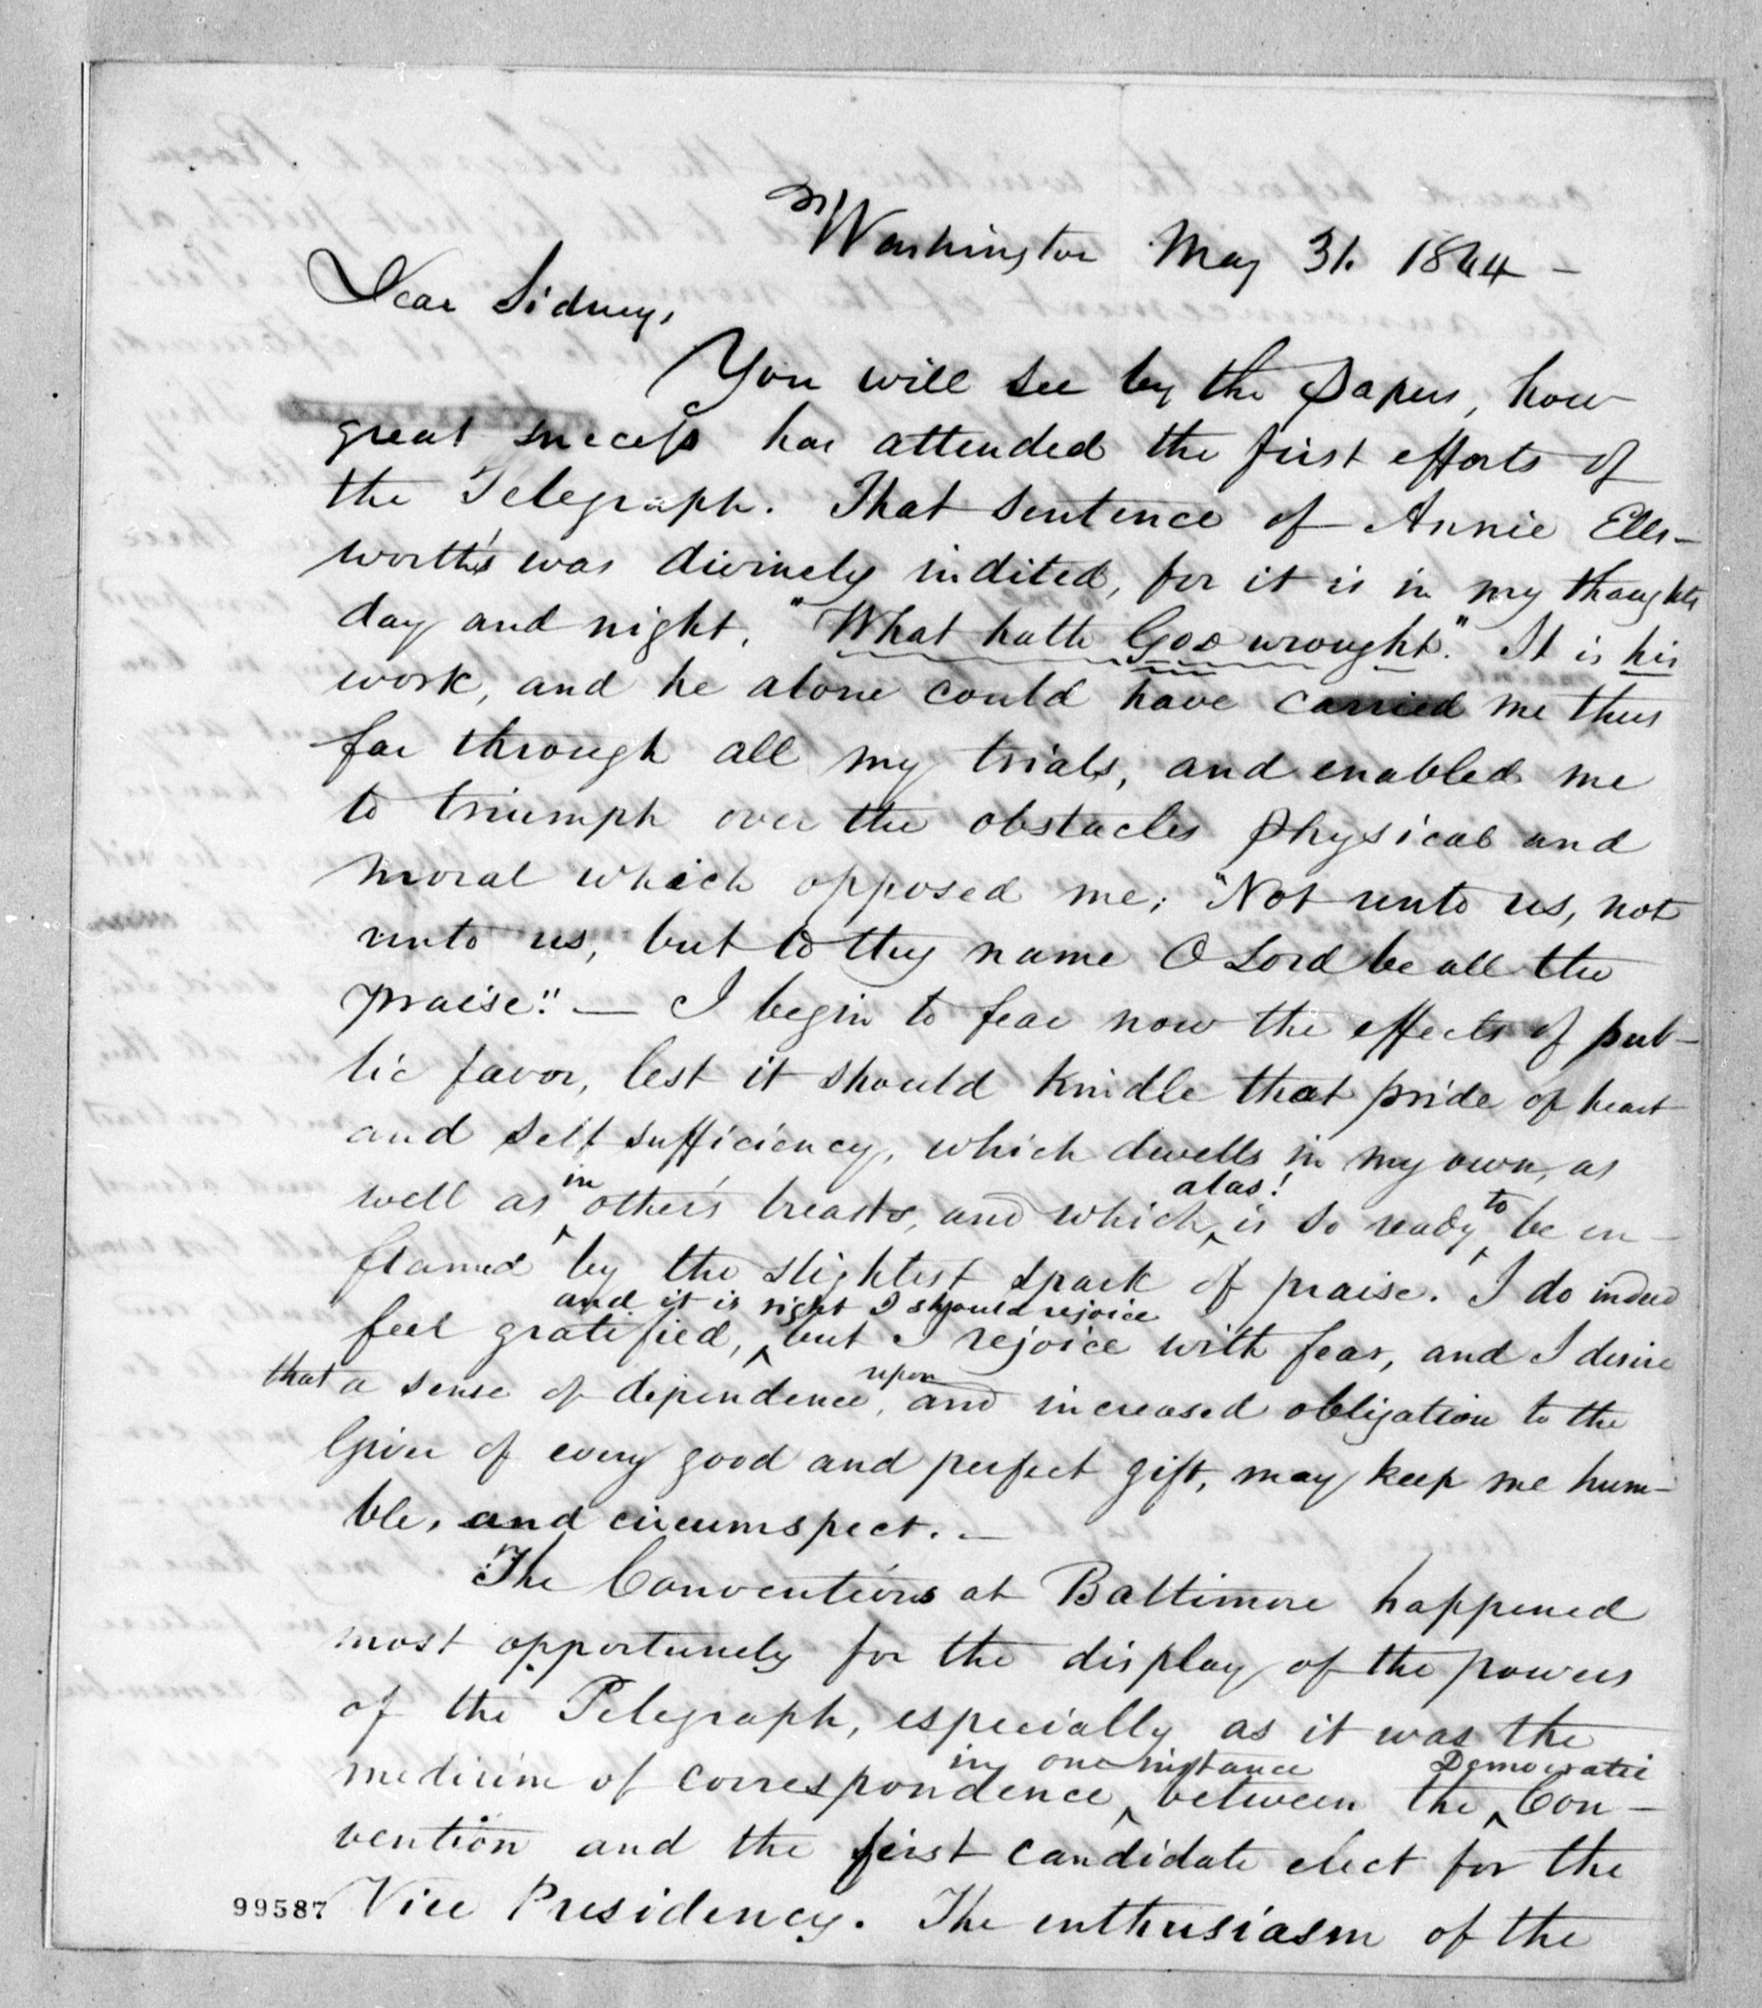 Washington May 31. 1844 –
Dear Sidney,
You will see by the Papers, how
great success has attended the first efforts of
the Telegraph. That sentence of Annie Ells-
worth's was divinely indited, for it is in my thoughts
day and night. "What hath God wrought." It is his
work, and he alone could have carried me thus
far through all my trials, and enabled me
to triumph over the obstacles physical and
moral which opposed me; "Not unto us, not
unto us, but to thy name O Lord be all the
praise." — I begin to fear now the effects of pub-
lic favor, lest it should kindle that pride of heart
and self sufficiency, which dwells in my own, as
well as in other's breasts, and which, alas! is so ready to be en-
flamed by the slightest spark of praise. I do indeed
feel gratified, and it is right I should rejoice but I rejoice with fear, and I desire
that a sense of dependence, upon and increased obligation to the
Giver of every good and perfect gift, may keep me hum-
ble, and circumspect. –
The Conventions at Baltimore happened
most opportunely for the display of the powers
of the Telegraph, especially as it was the
medium of correspondence, in one instance between the Democratic Con-
vention and the first candidate elect for the
99587 Vice Presidency. The enthusiasm of the